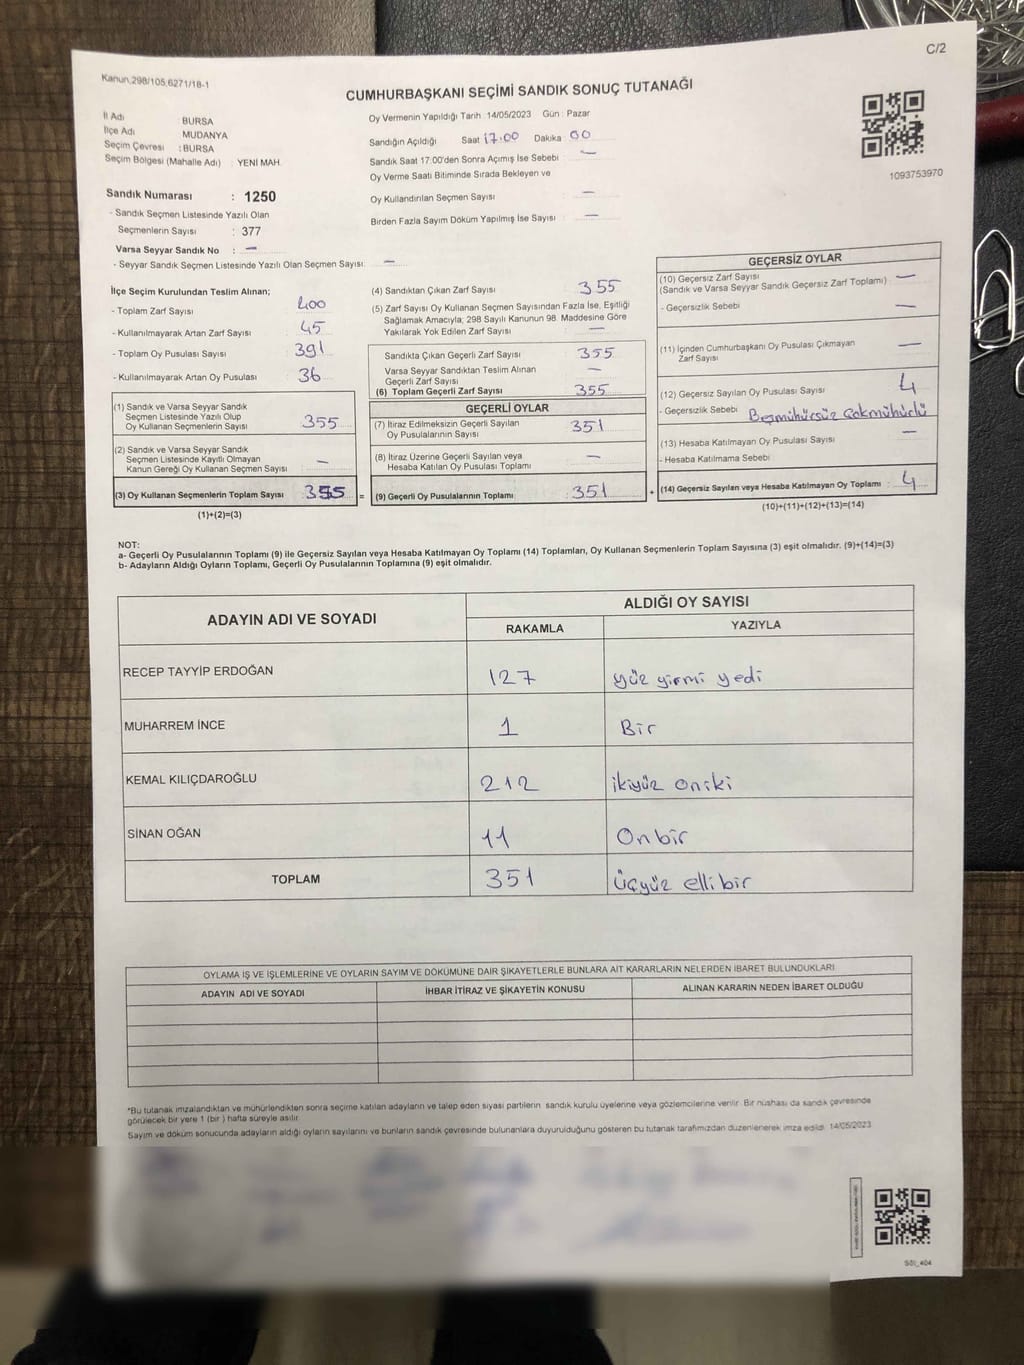 C/2
Kanun,298/105,6271/18-1
CUMHURBAŞKANI SEÇİMİ SANDIK SONUÇ TUTANAĞI
İl Adı : BURSA
İlçe Adı : MUDANYA
Seçim Çevresi : BURSA
Seçim Bölgesi (Mahalle Adı) : YENİ MAH.
Sandık Numarası : 1250
- Sandık Seçmen Listesinde Yazılı Olan
Seçmenlerin Sayısı : 377
Varsa Seyyar Sandık No : —
- Seyyar Sandık Seçmen Listesinde Yazılı Olan Seçmen Sayısı: —
Oy Vermenin Yapıldığı Tarih : 14/05/2023 Gün : Pazar
Sandığın Açıldığı Saat 17:00 Dakika 00
Sandık Saat 17:00'den Sonra Açımış İse Sebebi : —
Oy Verme Saati Bitiminde Sırada Bekleyen ve
Oy Kullandırılan Seçmen Sayısı : —
Birden Fazla Sayım Döküm Yapılmış İse Sayısı : —
1093753970
İlçe Seçim Kurulundan Teslim Alınan;
- Toplam Zarf Sayısı : 400
- Kullanılmayarak Artan Zarf Sayısı : 45
- Toplam Oy Pusulası Sayısı : 391
- Kullanılmayarak Artan Oy Pusulası : 36
(1) Sandık ve Varsa Seyyar Sandık
Seçmen Listesinde Yazılı Olup
Oy Kullanan Seçmenlerin Sayısı : 355
(2) Sandık ve Varsa Seyyar Sandık
Seçmen Listesinde Kayıtlı Olmayan
Kanun Gereği Oy Kullanan Seçmen Sayısı : —
(3) Oy Kullanan Seçmenlerin Toplam Sayısı : 355 =
(1)+(2)=(3)
(4) Sandıktan Çıkan Zarf Sayısı : 355
(5) Zarf Sayısı Oy Kullanan Seçmen Sayısından Fazla İse, Eşitliği
Sağlamak Amacıyla; 298 Sayılı Kanunun 98. Maddesine Göre
Yakılarak Yok Edilen Zarf Sayısı : —
Sandıkta Çıkan Geçerli Zarf Sayısı : 355
Varsa Seyyar Sandıktan Teslim Alınan
Geçerli Zarf Sayısı : —
(6) Toplam Geçerli Zarf Sayısı : 355
GEÇERLİ OYLAR
(7) İtiraz Edilmeksizin Geçerli Sayılan
Oy Pusulalarının Sayısı : 351
(8) İtiraz Üzerine Geçerli Sayılan veya
Hesaba Katılan Oy Pusulası Toplamı : —
(9) Geçerli Oy Pusulalarının Toplamı : 351 +
GEÇERSİZ OYLAR
(10) Geçersiz Zarf Sayısı
(Sandık ve Varsa Seyyar Sandık Geçersiz Zarf Toplamı) : —
- Geçersizlik Sebebi : —
(11) İçinden Cumhurbaşkanı Oy Pusulası Çıkmayan
Zarf Sayısı : —
(12) Geçersiz Sayılan Oy Pusulası Sayısı : 4
- Geçersizlik Sebebi : Beşmühürsüz Çokmühürlü
(13) Hesaba Katılmayan Oy Pusulası Sayısı : —
- Hesaba Katılmama Sebebi :
(14) Geçersiz Sayılan veya Hesaba Katılmayan Oy Toplamı : 4
(10)+(11)+(12)+(13)=(14)
NOT:
a- Geçerli Oy Pusulalarının Toplamı (9) ile Geçersiz Sayılan veya Hesaba Katılmayan Oy Toplamı (14) Toplamları, Oy Kullanan Seçmenlerin Toplam Sayısına (3) eşit olmalıdır. (9)+(14)=(3)
b- Adayların Aldığı Oyların Toplamı, Geçerli Oy Pusulalarının Toplamına (9) eşit olmalıdır.
ADAYIN ADI VE SOYADI
ALDIĞI OY SAYISI
RAKAMLA YAZIYLA
RECEP TAYYİP ERDOĞAN 127 yüz yirmi yedi
MUHARREM İNCE 1 Bir
KEMAL KILIÇDAROĞLU 212 ikiyüz oniki
SİNAN OĞAN 11 Onbir
TOPLAM 351 üçyüz ellibir
OYLAMA İŞ VE İŞLEMLERİNE VE OYLARIN SAYIM VE DÖKÜMÜNE DAİR ŞİKAYETLERLE BUNLARA AİT KARARLARIN NELERDEN İBARET BULUNDUKLARI
ADAYIN ADI VE SOYADI İHBAR İTİRAZ VE ŞİKAYETİN KONUSU ALINAN KARARIN NEDEN İBARET OLDUĞU
*Bu tutanak imzalandıktan ve mühürlendikten sonra seçime katılan adayların ve talep eden siyasi partilerin sandık kurulu üyelerine veya gözlemcilerine verilir. Bir nüshası da sandık çevresinde
görülecek bir yere 1 (bir ) hafta süreyle asılır.
Sayım ve döküm sonucunda adayların aldığı oyların sayılarını ve bunların sandık çevresinde bulunanlara duyurulduğunu gösteren bu tutanak tarafımızdan düzenlenerek imza edildi. 14/05/2023